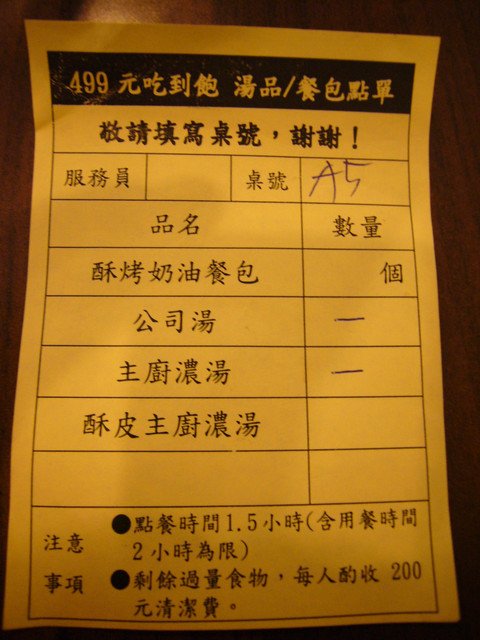 499 元吃到飽 湯品/餐包點單
敬請填寫桌號，謝謝！
服務員 桌號 A5
品名 數量
酥烤奶油餐包 個
公司湯 一
主廚濃湯 一
酥皮主廚濃湯
注意事項
●點餐時間1.5小時(含用餐時間
2小時為限)
●剩餘過量食物，每人酌收 200
元清潔費。